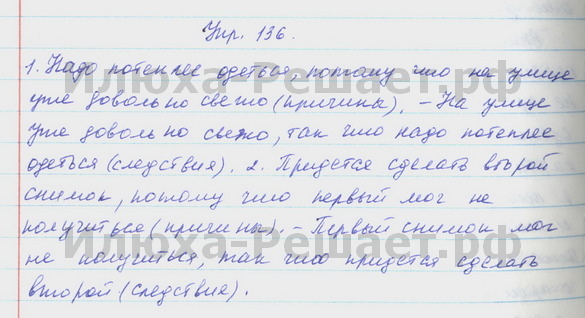 Упр. 136.
1. Надо потеплее одеться, потому что на улице
уже довольно свежо (причины). – На улице
уже довольно свежо, так что надо потеплее
одеться (следствия). 2. Придется сделать второй
снимок, потому что первый мог не
получиться (причины). – Первый снимок мог
не получиться, так что придется сделать
второй (следствия).
Илюха-Решает.рф
Илюха-Решает.рф